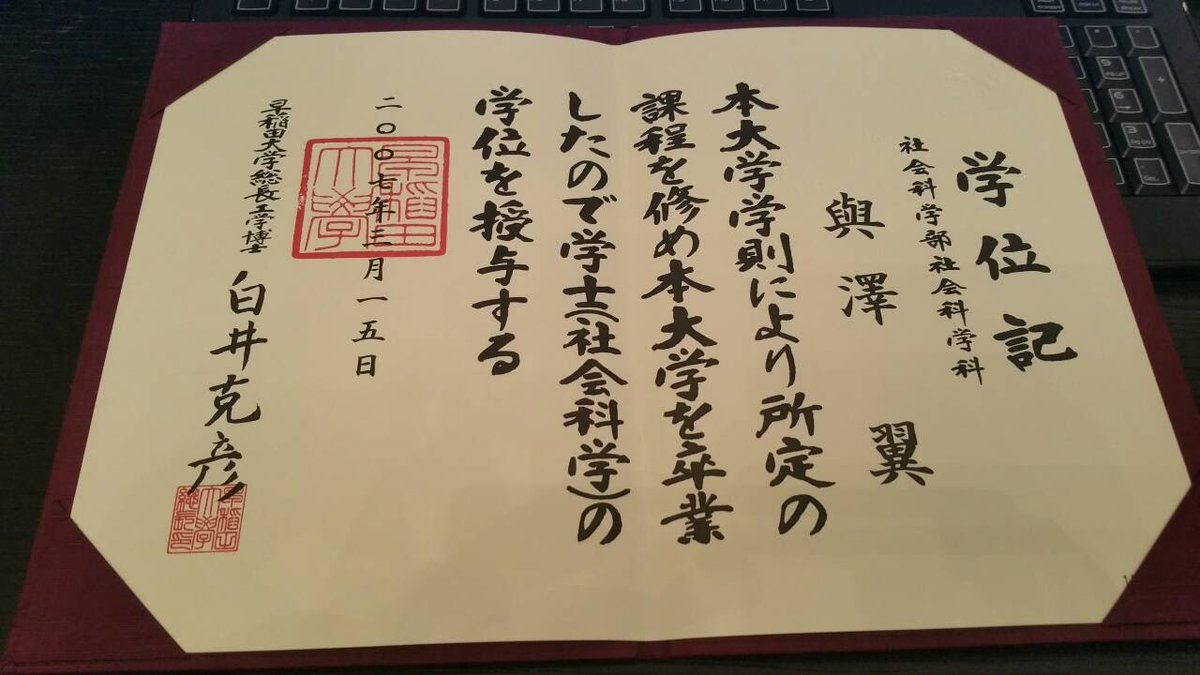 学位記
社会科学部社会科学科
與澤翼
本大学学則により所定の
課程を修め本大学を卒業
したので学士(社会科学)の
学位を授与する
二〇〇七年三月一五日
早稲田大学総長工学博士
白井克彦